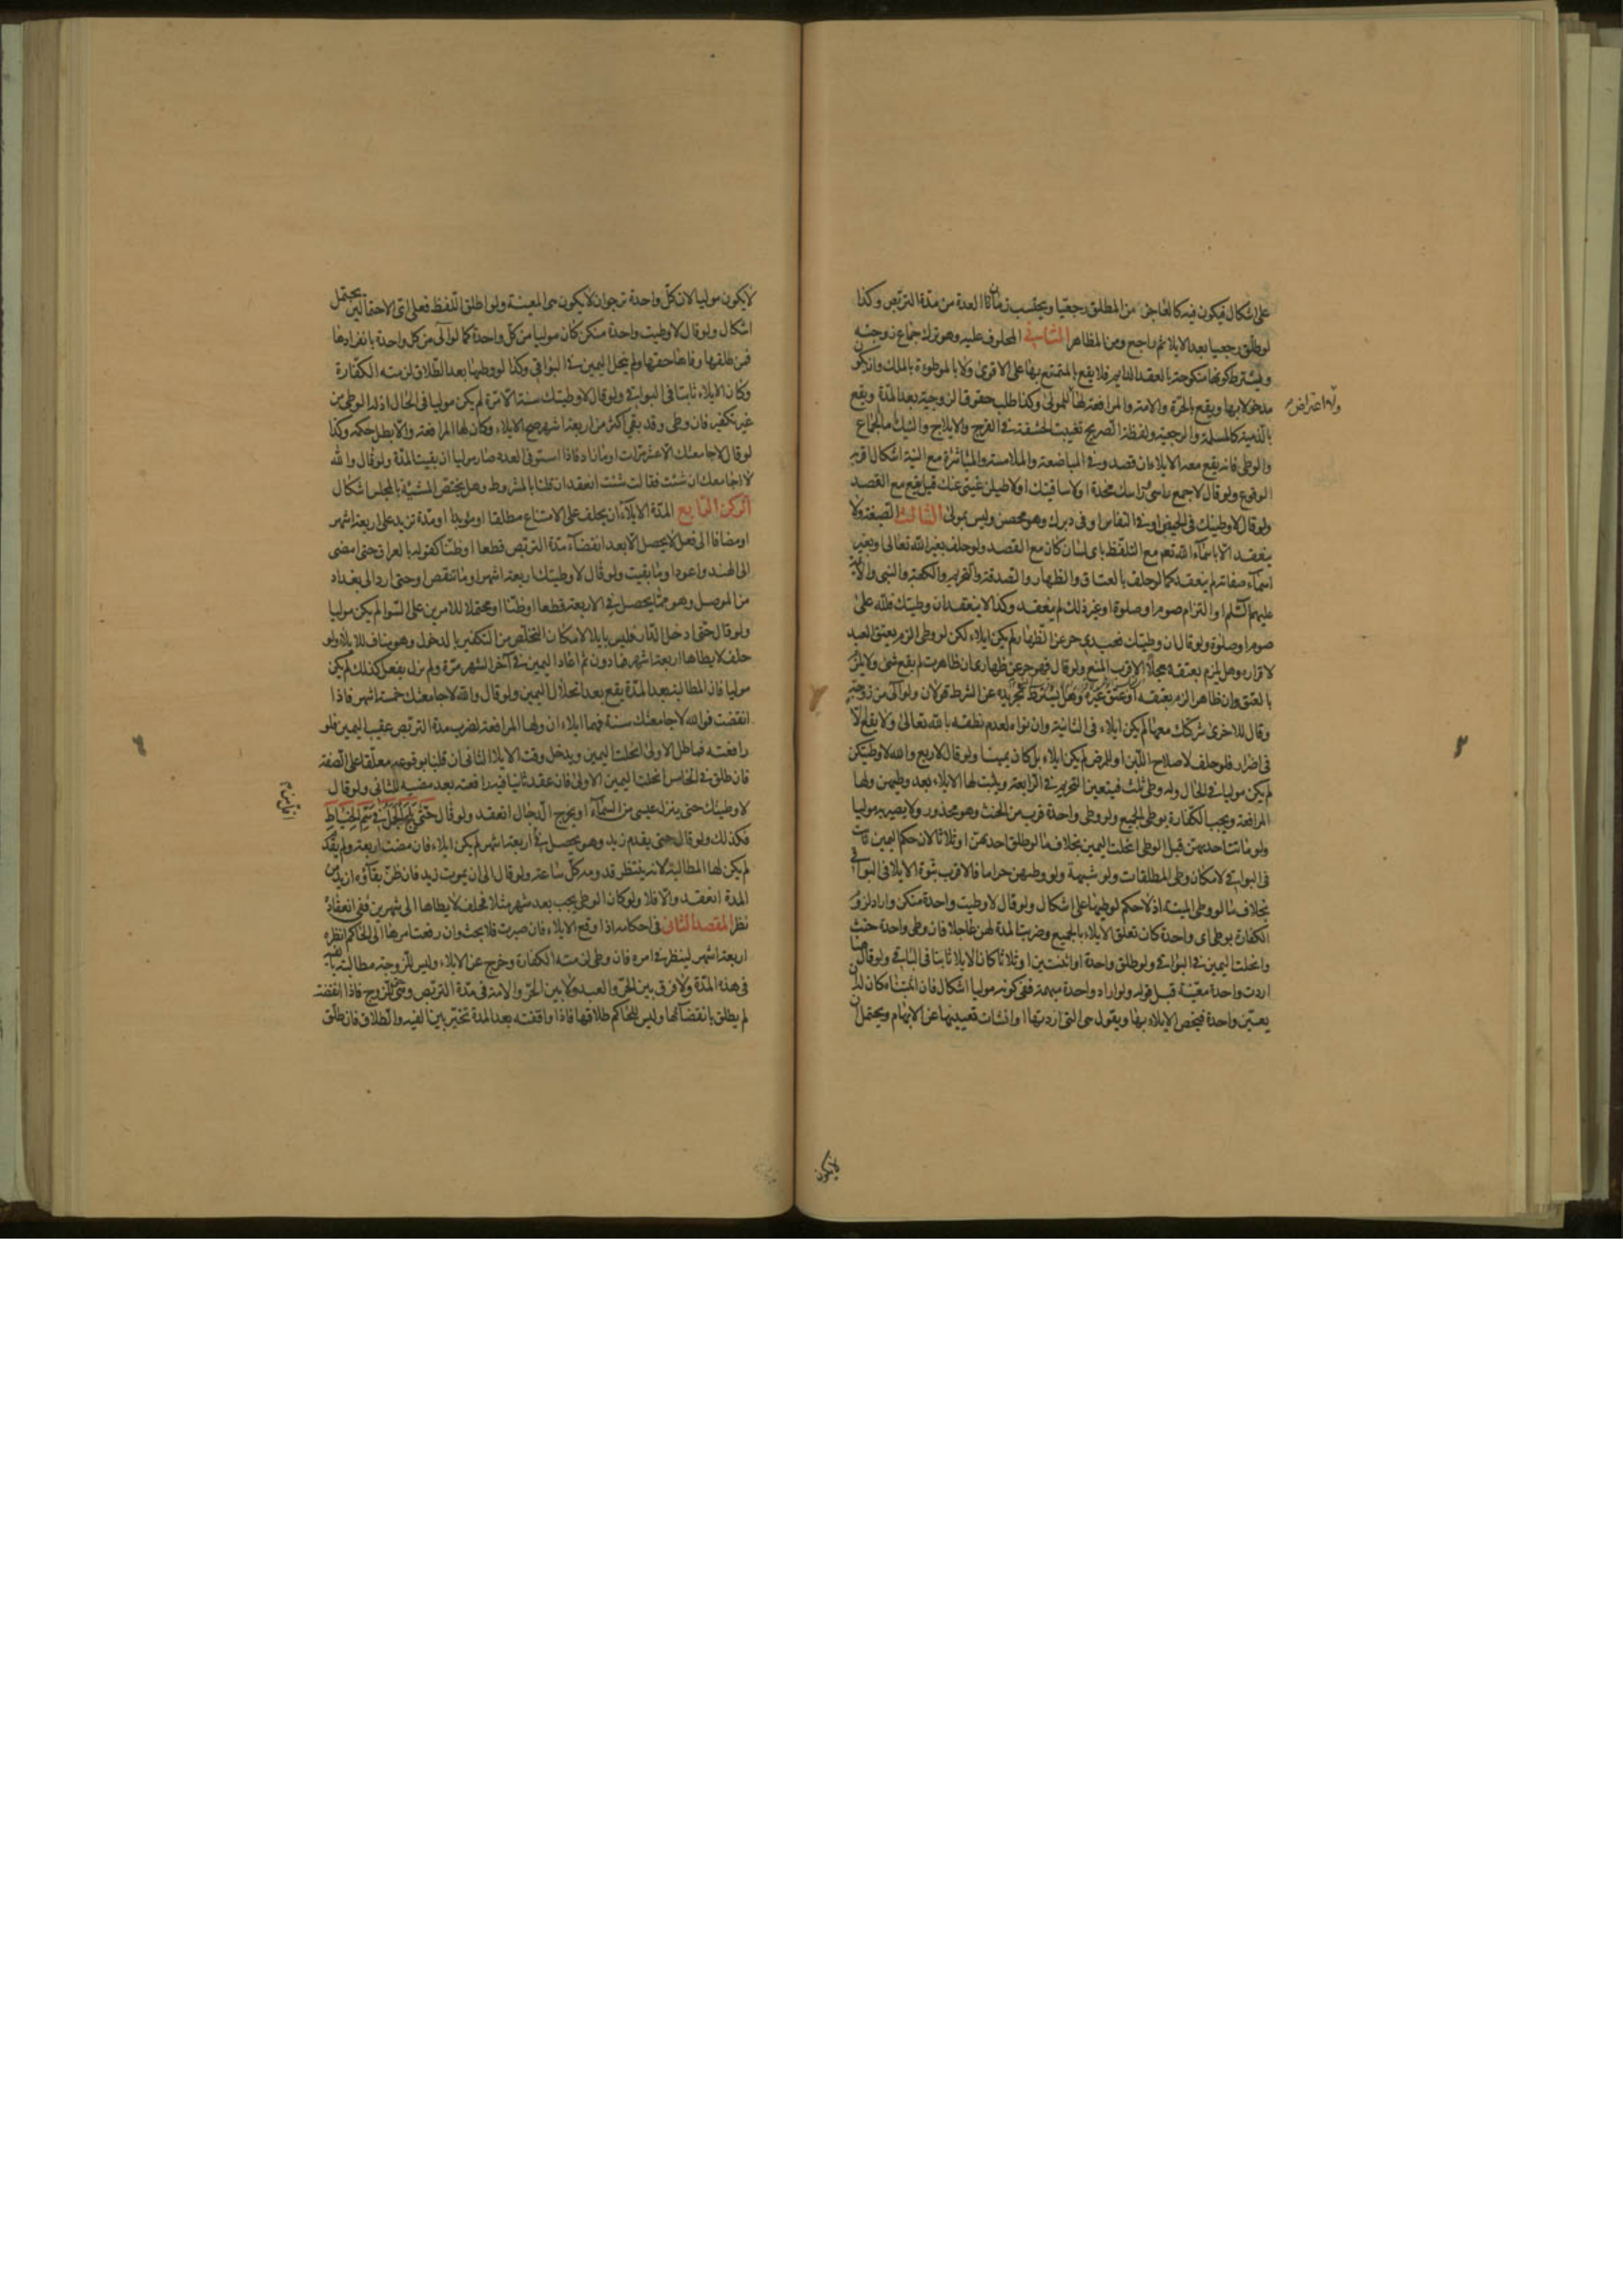 على اشكال فيكون فيه كالعاجز من المطلق رجعيا ويحتسب زمان العدة من مدة التربص وكذا
لو طلق رجعيا بعد الايلاء ثم راجع ومن المظاهر الثانى المحلوف عليه وهو ترك جماع زوجته
ويشترط كونها منكوحة بالعقد الدايم فلا يقع بالمتمتع بها على الاقوى ولا بالموطوءة بالملك وان يكون
مدخولا بها ويقع بالحرة والامة والمرافعة لها لا للمولى وكذا طلب حقوق الزوجية بعد المدة ويقع
بالذمية كالمسلمة والرجعية ولفظة الصريح تغييب الحشفة فى الفرج والايلاج والنيك اما الجماع
والوطى فانه يقع معه الايلاء ان قصد وفى المباضعة والملامسة والمباشرة مع النية اشكال اقربه
الوقوع ولو قال لا جمع راسى وراسك مخدة او لا ساقيتك او لاطيلن غيبتى عنك قيل يقع مع القصد
ولو قال لا وطيتك فى الحيض او فى النفاس او فى دبرك وهو محسن وليس بمولى الثالث الصيغة ولا
ينعقد الا باسماء الله تعالى مع التلفظ باى لسان كان مع القصد ولو حلف بغير الله تعالى او بغير
اسماء صفاته لم ينعقد كما لو حلف بالعتاق والظهار والصدقة والتحريم والكعبة والنبى والائمة
عليهم السلم او التزام صوم او صلوة او غير ذلك لم ينعقد وكذا لا ينعقد ان وطيتك فلله على
صوم او صلوة ولو قال ان وطيتك فعبدى حر عن الظهار لم يكن ايلاء لكن لو وطى الزم بعتق العبد
لاقراره وهل يلزم بعتقه معجلا الاقرب المنع ولو قال فهو حر عن ظهارى ان ظاهرت لم يقع شئ ولا يلزم
بالعتق وان ظاهر الزم بعتقه او عتق غيره وهل يشترط تجريده عن الشرط قولان ولو آلى من زوجة
وقال للاخرى شركتك معها لم يكن ايلاء فى الثانية وان نواه لعدم نطقه بالله تعالى ولا يقع الا
فى اضرار فلو حلف لاصلاح اللبن او لمرض لم يكن ايلاء بل كان يمينا ولو قال لاربع والله لا وطيتكن
لم يكن موليا فى الحال وله وطى ثلث فيتعين التحريم فى الرابعة ويثبت لها الايلاء بعد وطيهن ولها
المرافعة ويجب الكفارة بوطى الجميع ولو وطى واحدة قرب من الحنث وهو محذور ولا يصير به موليا
ولو ماتت احديهن قبل الوطى انحلت اليمين بخلاف ما لو طلق احديهن او ثلاثا لان حكم اليمين ثابت
فى البواقى لامكان وطى المطلقات ولو بشبهة ولو وطيهن حراما فالاقرب ثبوت الايلاء فى البواقى
بخلاف ما لو وطى الميتة اذ لا حكم لوطيها على اشكال ولو قال لا وطيت واحدة منكن واراد لزوم
الكفارة بوطى اى واحدة كان تعلق الايلاء بالجميع وضربت المدة لهن عاجلا فان وطى واحدة حنث
وانحلت اليمين فى البواقى ولو طلق واحدة او اثنتين او ثلاثا كان الايلاء ثابتا فى الباقى ولو قال هنا
اردت واحدة معينة قبل قوله ولو اراد واحدة مبهمة ففى كونه موليا اشكال فان اثبتناه كان له ان
يعين واحدة فيخص الايلاء بها ويقول هى التى اردتها او انشات تعيينها عن الابهام ويحتمل ان
ولها اعتراض
لا يكون
لا يكون موليا لان كل واحدة ترجو ان لا يكون هى المعينة ولو اطلق اللفظ فعلى اى الاحتمالين يحتمل
اشكال ولو قال لا وطيت واحدة منكن كان موليا من كل واحدة كما لو آلى من كل واحدة بانفرادها
فمن طلقها وفاها حقها ولم ينحل اليمين فى البواقى وكذا لو وطيها بعد الطلاق لزمته الكفارة
وكان الايلاء ثابتا فى البواقى ولو قال لا وطيتك سنة الا مرة لم يكن موليا فى الحال اذ له الوطى من
غير تكفير فان وطى وقد بقى اكثر من اربعة اشهر صح الايلاء وكان لها المرافعة والا بطل حكمه وكذا
لو قال لا جامعتك الا عشر مرات او ما زاد فاذا استوفى العدد صار موليا ان بقيت المدة ولو قال والله
لا اجامعك ان شئت فقالت شئت انعقد ان قلنا بالمشروط وهل يختص المشية بالمجلس اشكال
الركن الرابع المدة الايلاء ان يحلف على الامتناع مطلقا او مؤبدا او مدة تزيد على اربعة اشهر
او مضافا الى فعل لا يحصل الا بعد انقضاء مدة التربص قطعا او ظنا كقوله بالعراق حتى امضى
الى الهند واعود او ما بقيت ولو قال لا وطيتك اربعة اشهر او ما تنقص او حتى ارد الى بغداد
من الموصل وهو مما يحصل فى الاربعة قطعا او ظنا او محتملا للامرين على السوا لم يكن موليا
ولو قال حتى ادخل الدار فليس بايلاء لامكان التخلص من التكفير بالدخول وهو مناف للايلاء ولو
حلف لا يطاها اربعة اشهر فما دون ثم اعاد اليمين فى آخر الشهر مرة ولم يزل يفعل كذلك لم يكن
موليا فان المطالبة بعد المدة يقع بعد انحلال اليمين ولو قال والله لا جامعتك خمسة اشهر فاذا
انقضت فوالله لا جامعتك سنة فهما ايلاءان ولها المرافعة لضرب مدة التربص عقيب اليمين فلو
رافعته فماطل الاولى انحلت اليمين ويدخل وقت الايلاء الثانى ان قلنا بوقوعه معلقا على الصفة
فان طلق فى الخامس انحلت اليمين الاولى فان عقد ثانيا فيه رافعته بعد مضيه للثانى ولو قال
لا وطيتك حتى ينزل عيسى من السماء او يخرج الدجال انعقد ولو قال حَتَّى يَلِجَ الْجَمَلُ فِى سَمِّ الْخِيَاطِ
فكذلك ولو قال حتى يقدم زيد وهو يحصل فى اربعة اشهر لم يكن ايلاء فان مضت اربعة ولم يقدم
لم يكن لها المطالبة لانه ينتظر قدومه كل ساعة ولو قال الى ان يموت زيد فان ظن بقاؤه ازيد من
المدة انعقد والا فلا ولو كان الوطى يجب بعد شهر مثلا فحلف لا يطاها الى شهرين ففى انعقاده
نظر المقصد الثانى فى احكامه اذا وقع الايلاء فان صبرت فلا بحث وان رفعت امرها الى الحاكم انظره
اربعة اشهر لينظر فى امره فان وطى لزمته الكفارة وخرج عن الايلاء وليس للزوجة مطالبته بالفئة
فى هذه المدة ولا فرق بين الحر والعبد ولا بين الحرة والامة فى مدة التربص وهى حق للزوج فاذا انقضت
لم يطلق بانقضائها وليس للحاكم طلاقها فاذا واقفته بعد المدة تخير بين الفئة والطلاق فان طلق